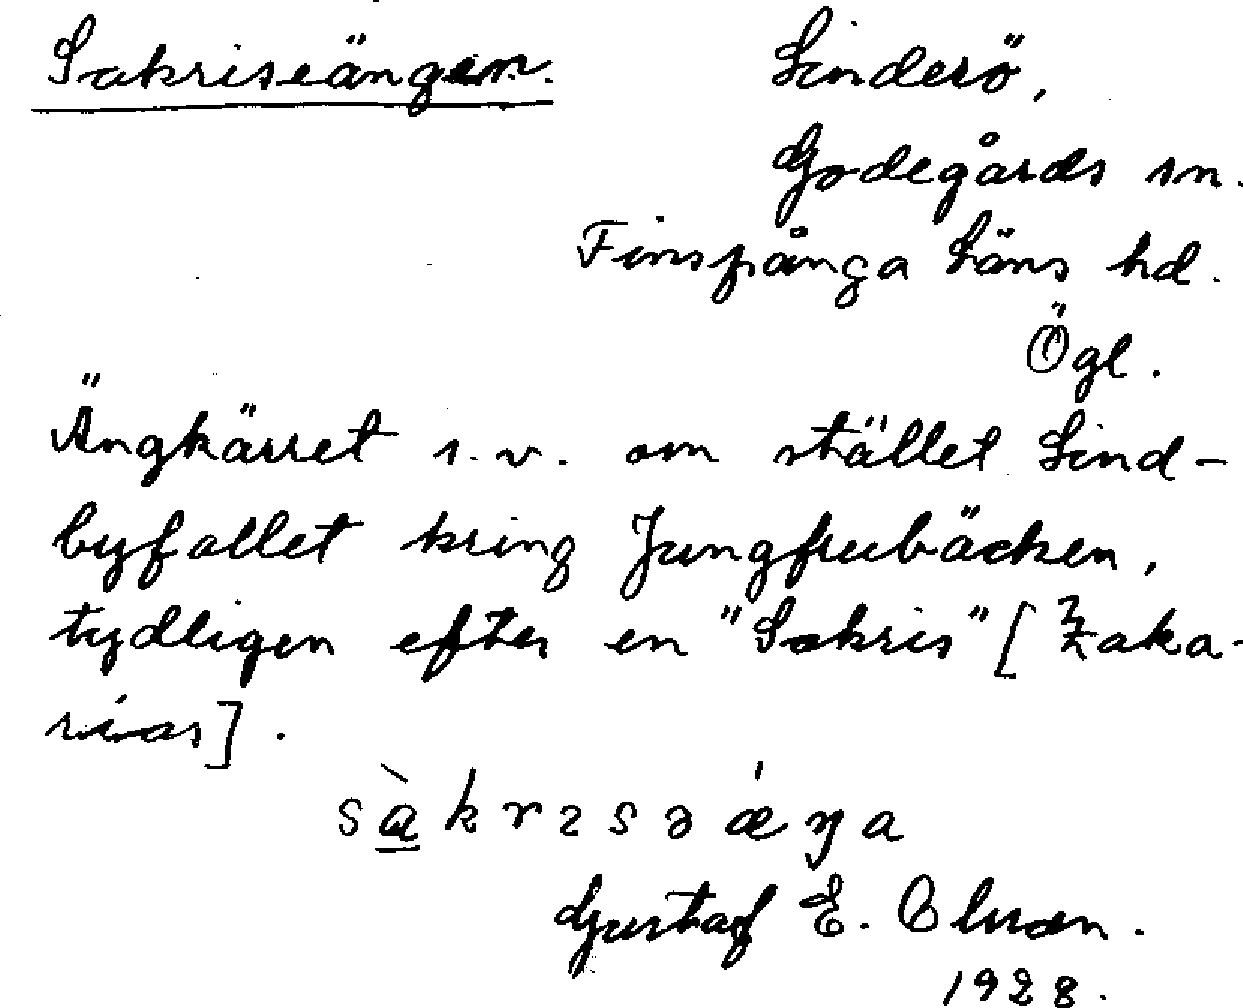 Sakriseängen.
Linderö,
Godegårds sn.
Finspånga läns hd.
Ögl.
Ängkärret s.v. om stället Lind-
byfallet kring Jungfrubäcken,
tydligen efter en "Sakris" [Zaka-
rias].
sàkrɪsəǽŋa
Gustaf E. Olsson.
1928.